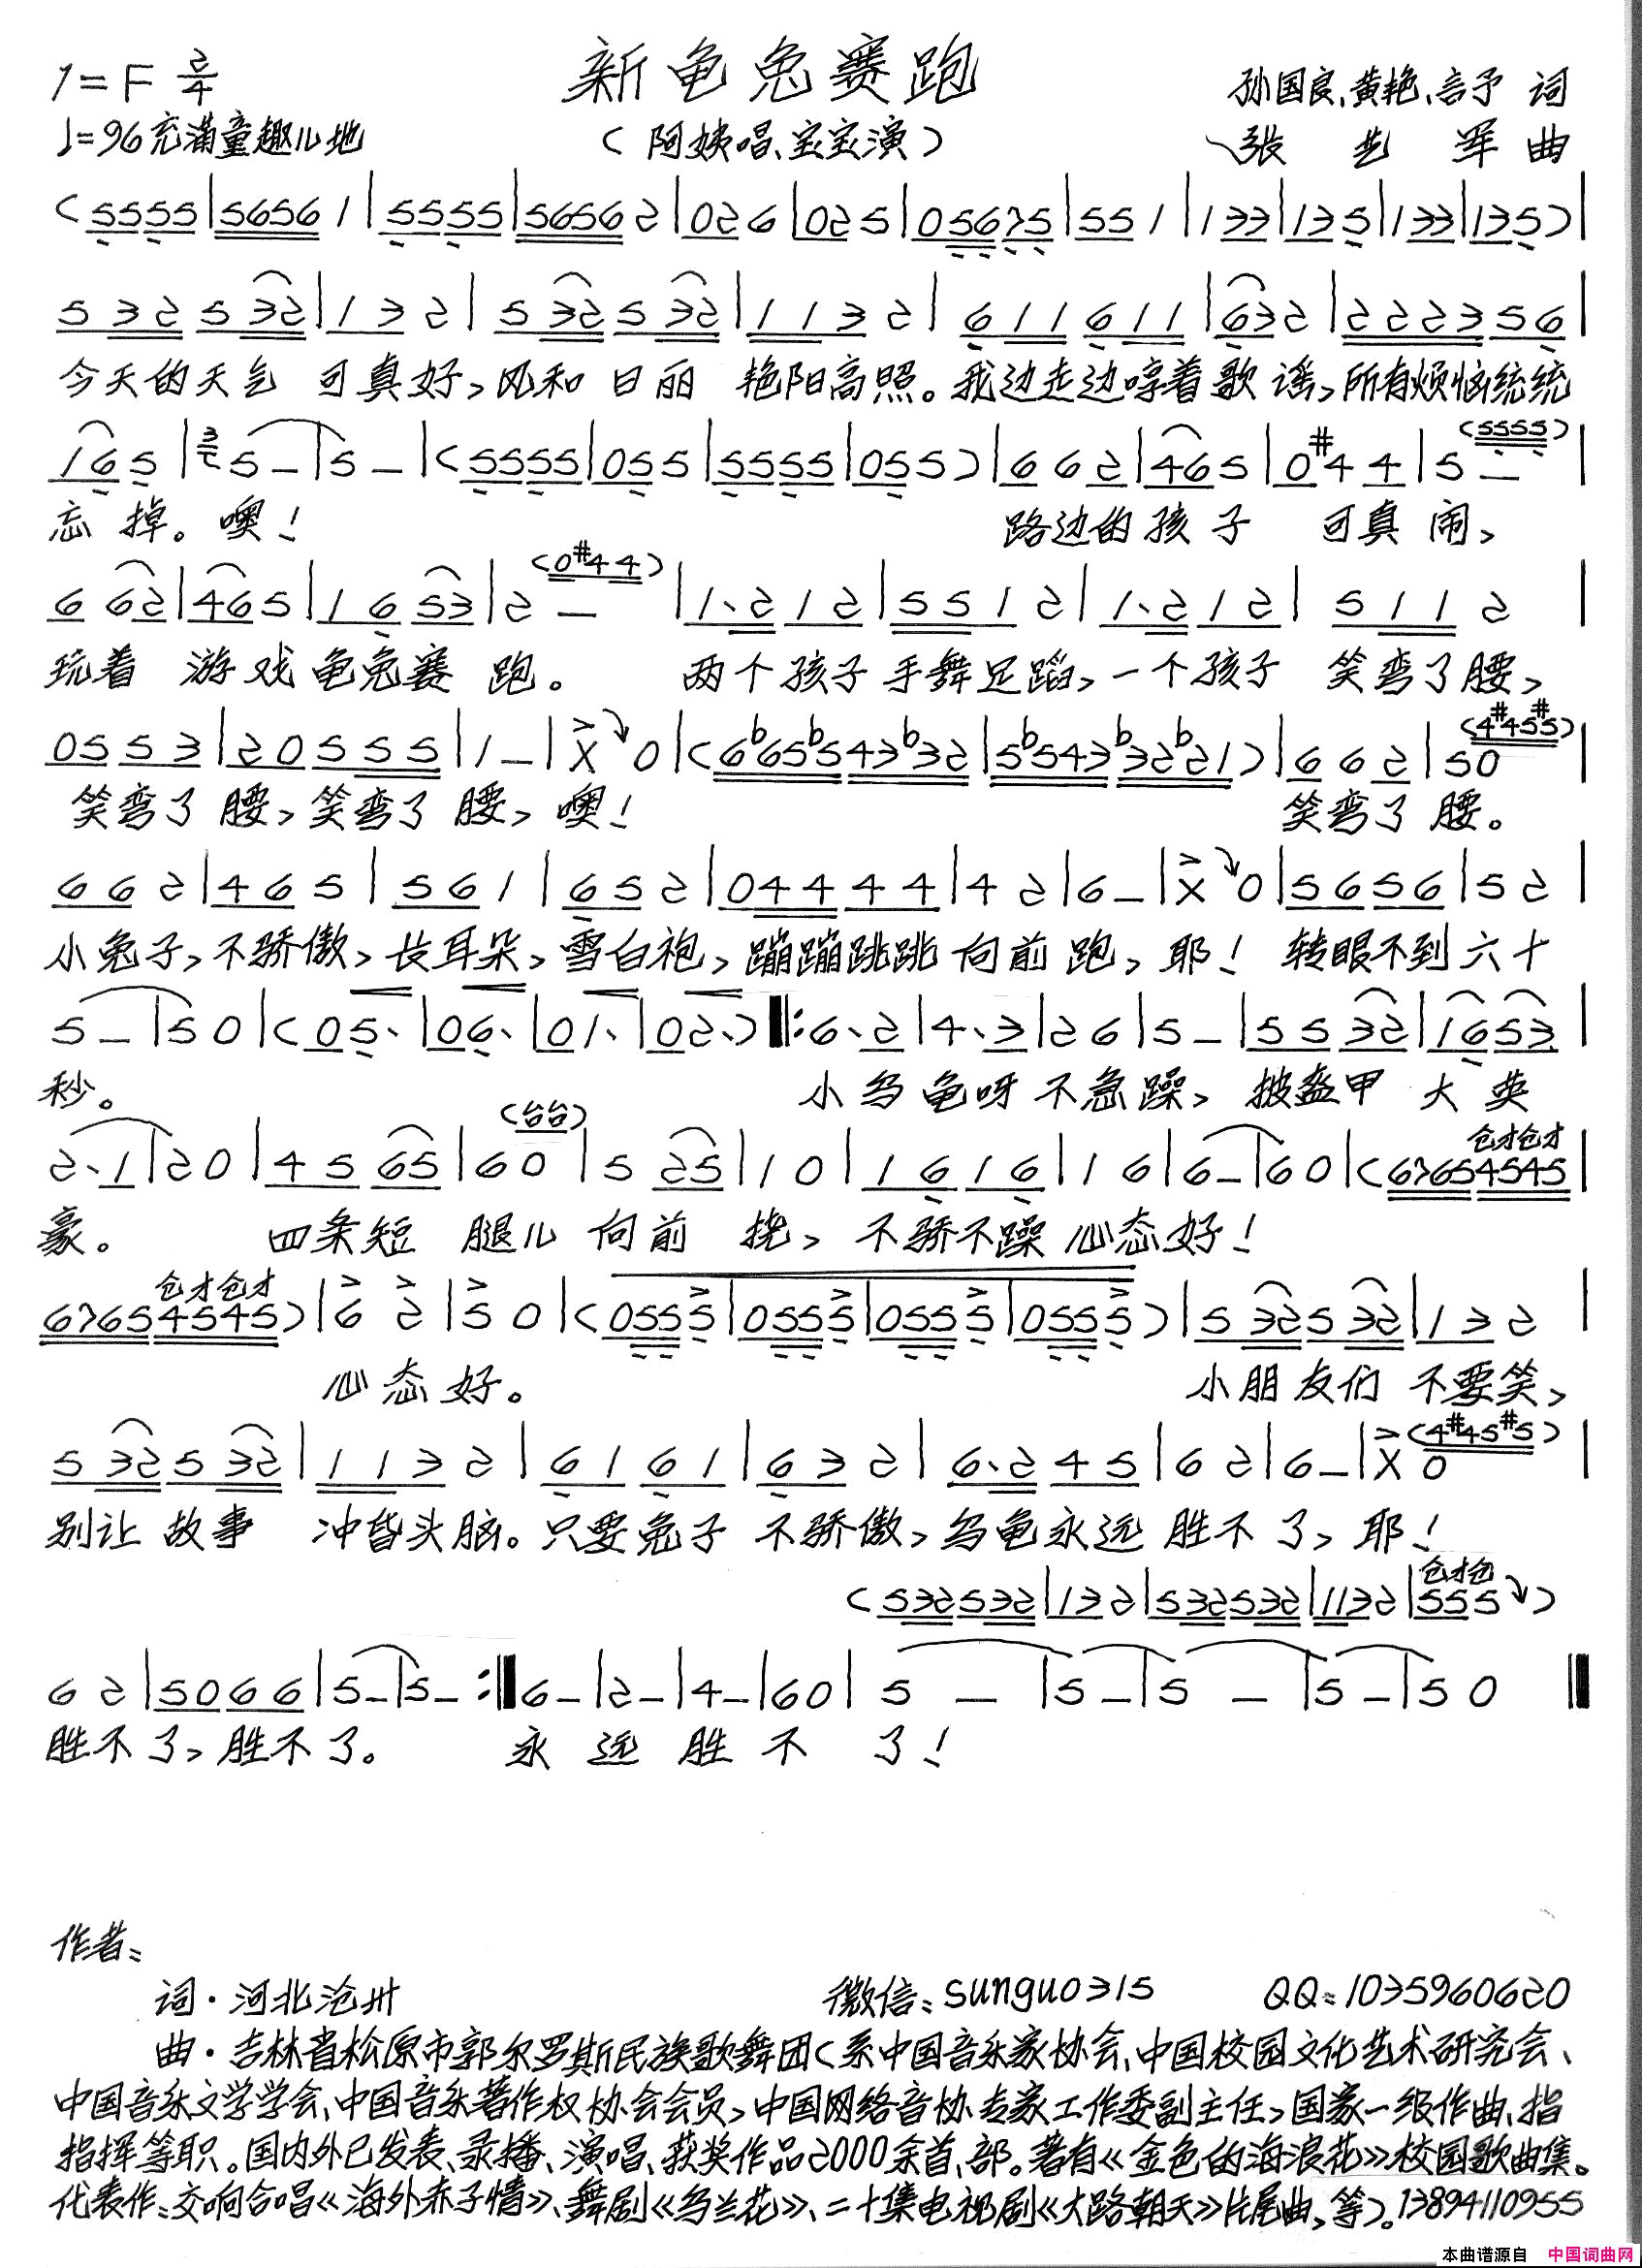 新龟兔赛跑
1=F 2/4
孙国良、黄艳、言予 词
♩=96 充满童趣儿地
（阿姨唱、宝宝演）
张艺军 曲
(5555|56561|5555|56562|026|025|05675|551|133|135|133|135)|
532532|132|532532|1132|611611|632|222356|
今天的天气 可真好，风和日丽 艳阳高照。我边走边哼着歌谣，所有烦恼统统
165|5—|5—|(5555|055|5555|055)|662|465|0#44|5—(5555)|
忘掉。噢！ 路边的孩子 可真闹，
662|465|1653|2—(0#44)|1、212|5512|1、212|5112|
玩着 游戏龟兔赛 跑。 两个孩子手舞足蹈，一个孩子 笑弯了腰，
0553|20555|1—|X0|(6b65b543b32|5b543b32b21)|662|50(4#45#5)|
笑弯了 腰，笑弯了 腰，噢！ 笑弯了 腰。
662|465|561|652|04444|42|6—|X0|5656|52|
小兔子，不骄傲，长耳朵，雪白袍，蹦蹦跳跳 向前 跑，耶！ 转眼不到六十
5—|50|(05、|06、|01、|02、)‖:6、2|4、3|26|5—|5532|1653|
秒。 小乌龟呀不急躁，披盔甲 大 英
2、1|20|4565|60(台台)|525|10|1616|16|6—|60|(67654545|
仓才仓才
豪。 四条短 腿儿 向前 挠，不骄不躁 心态好！
仓才仓才
67654545)|62|50|(0555|0555|0555|0555)|532532|132|
心态好。 小朋友们 不要笑，
532532|1132|6161|632|6、245|62|6—|X0(4#45#5)|
别让 故事 冲昏头脑。只要兔子 不骄傲，乌龟永远 胜不了，耶！
仓才仓
(532532|132|532532|1132|555)
62|5066|5—|5—:‖6—|2—|4—|60|5—|5—|5—|5—|50‖
胜不了，胜不了。 永远胜不 了！
作者：
词·河北沧州 微信：sunguo315 QQ：1035960620
曲·吉林省松原市郭尔罗斯民族歌舞团（系中国音乐家协会、中国校园文化艺术研究会、
中国音乐文学学会、中国音乐著作权协会会员，中国网络音协专家工作委副主任，国家一级作曲、指
指挥等职。国内外已发表、录播、演唱、获奖作品2000余首、部。著有《金色的海浪花》校园歌曲集。
代表作：交响合唱《海外赤子情》、舞剧《乌兰花》、二十集电视剧《大路朝天》片尾曲，等）。13894110955
本曲谱源自 中国词曲网